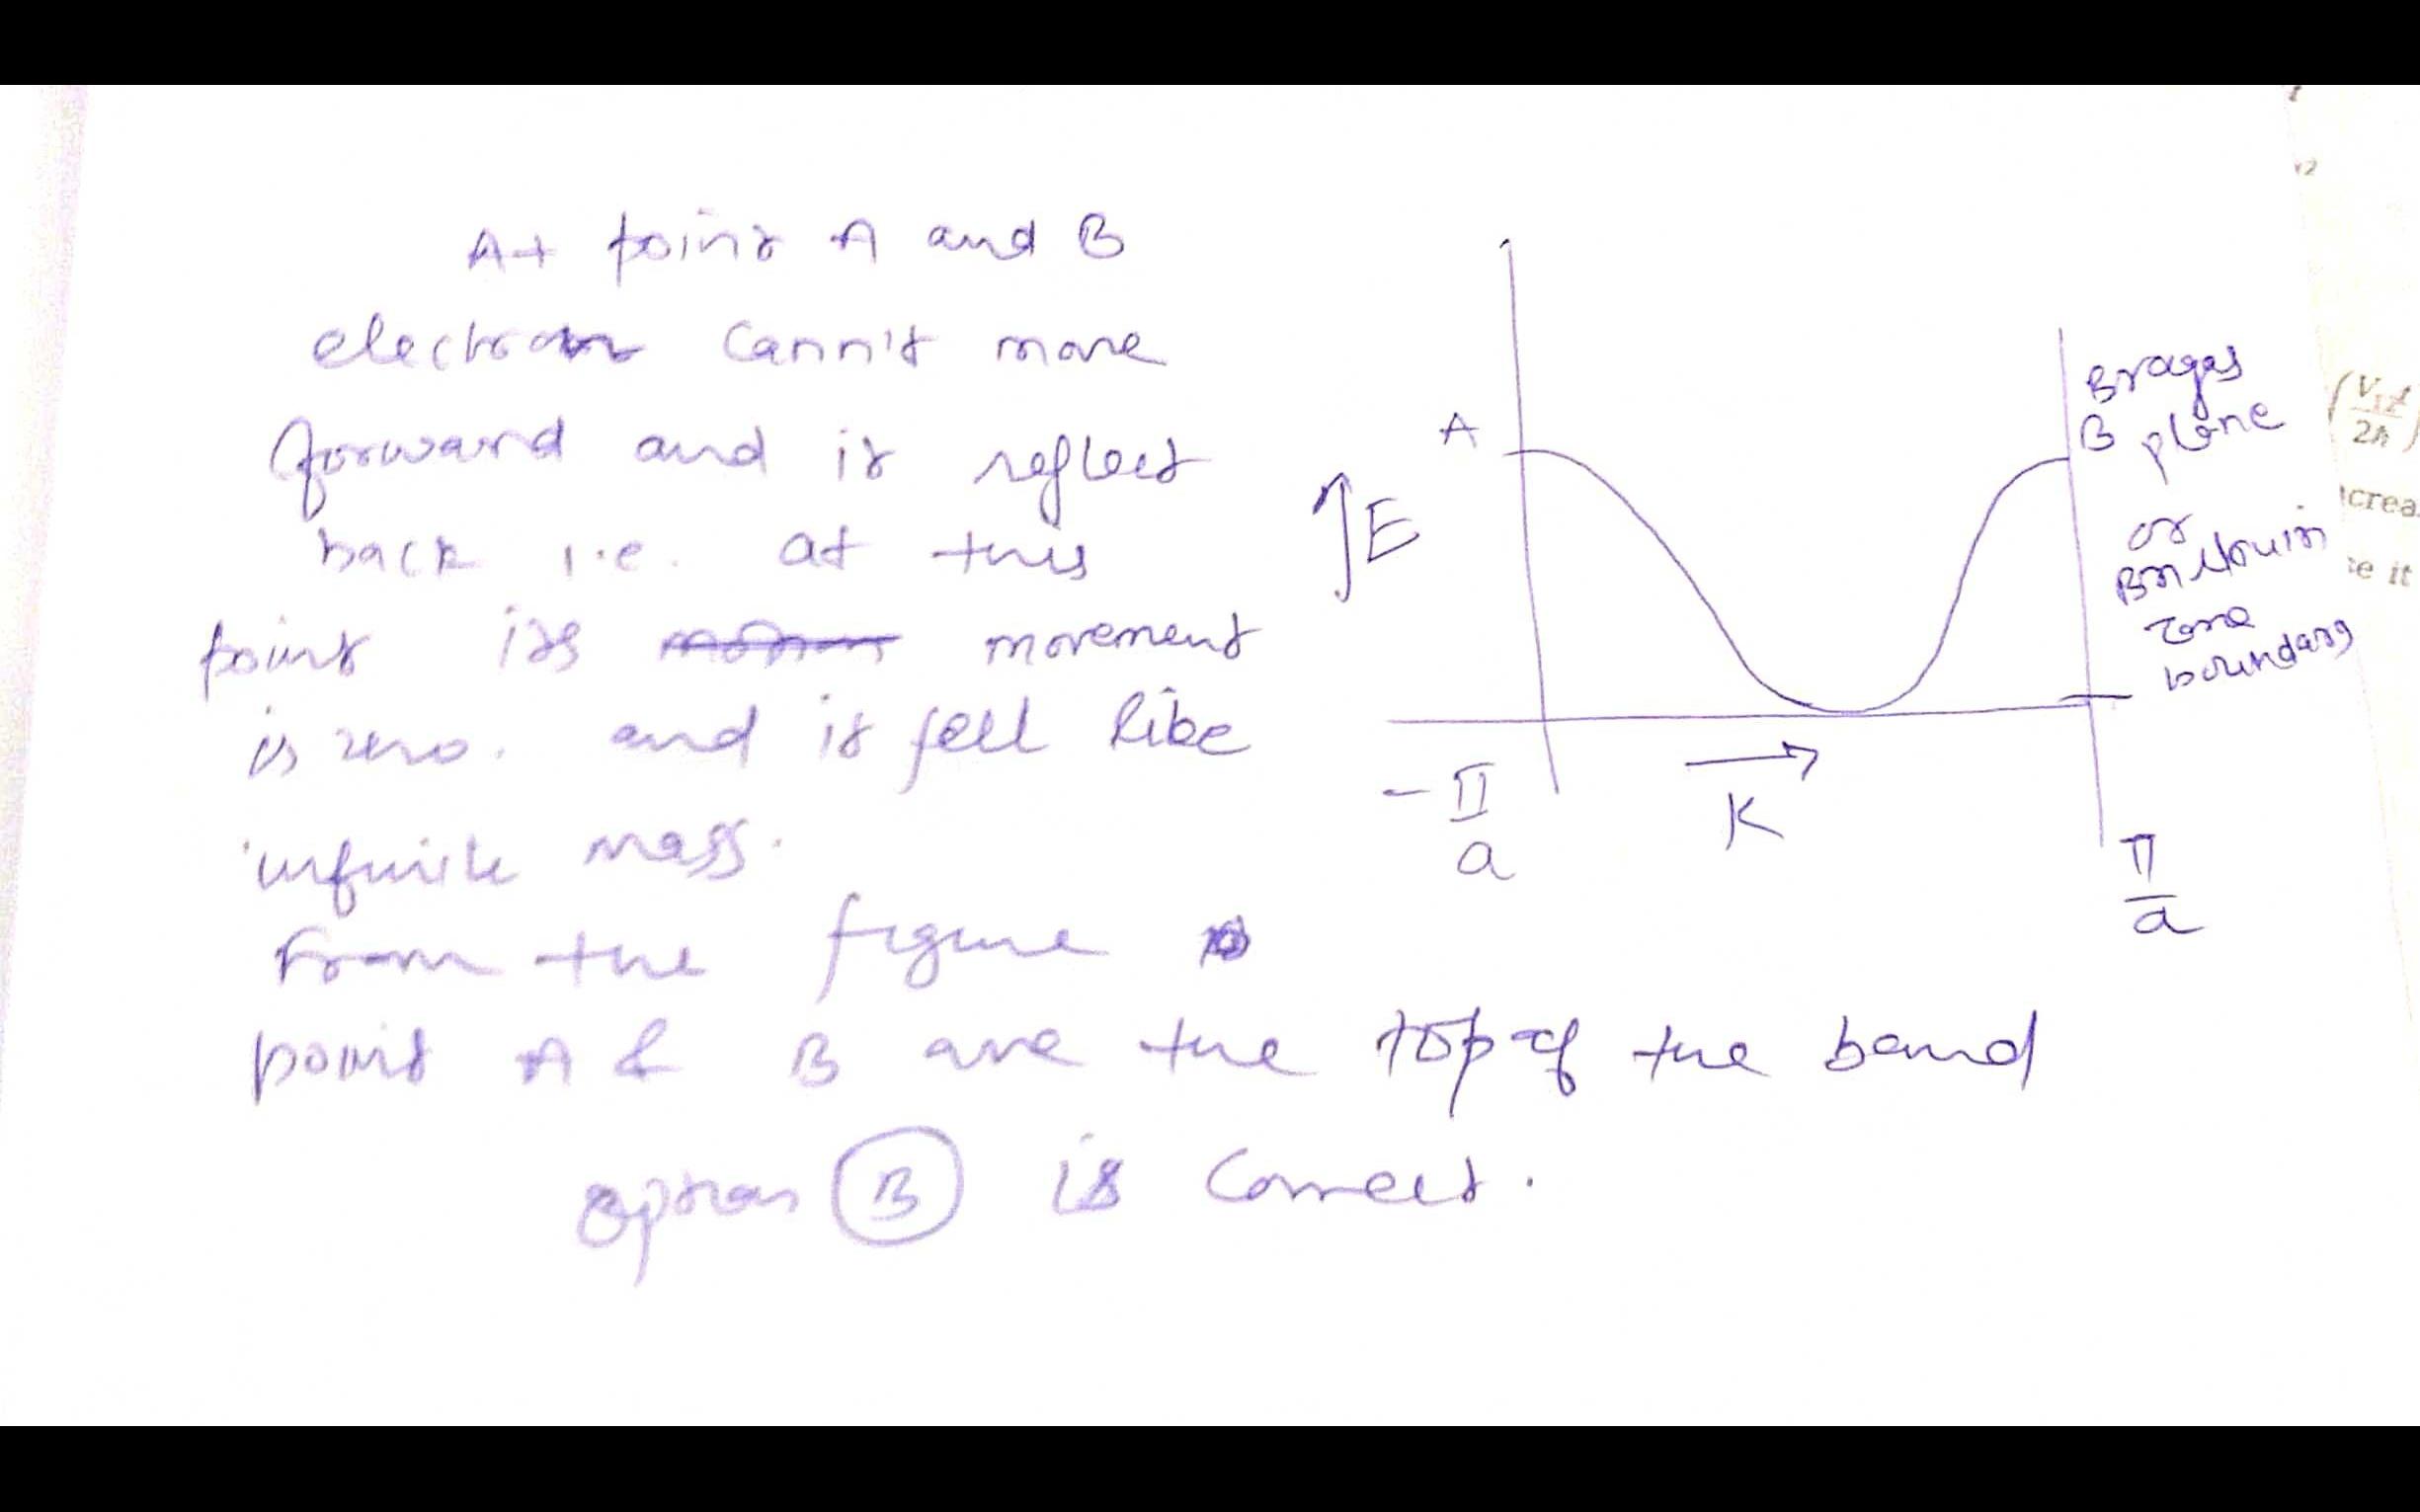 At point A and B
electron cann't move
forward and it reflect
back i.e. at this
point its movement
is zero. and it fell like
infinite mass.
From the figure
point A & B are the top of the band
option B is correct.
A
↑E
- π
a
→
K
Braggs
B plane
or
Brillouin
zone
boundary
π
a
V₁t
2ħ
crea
e it